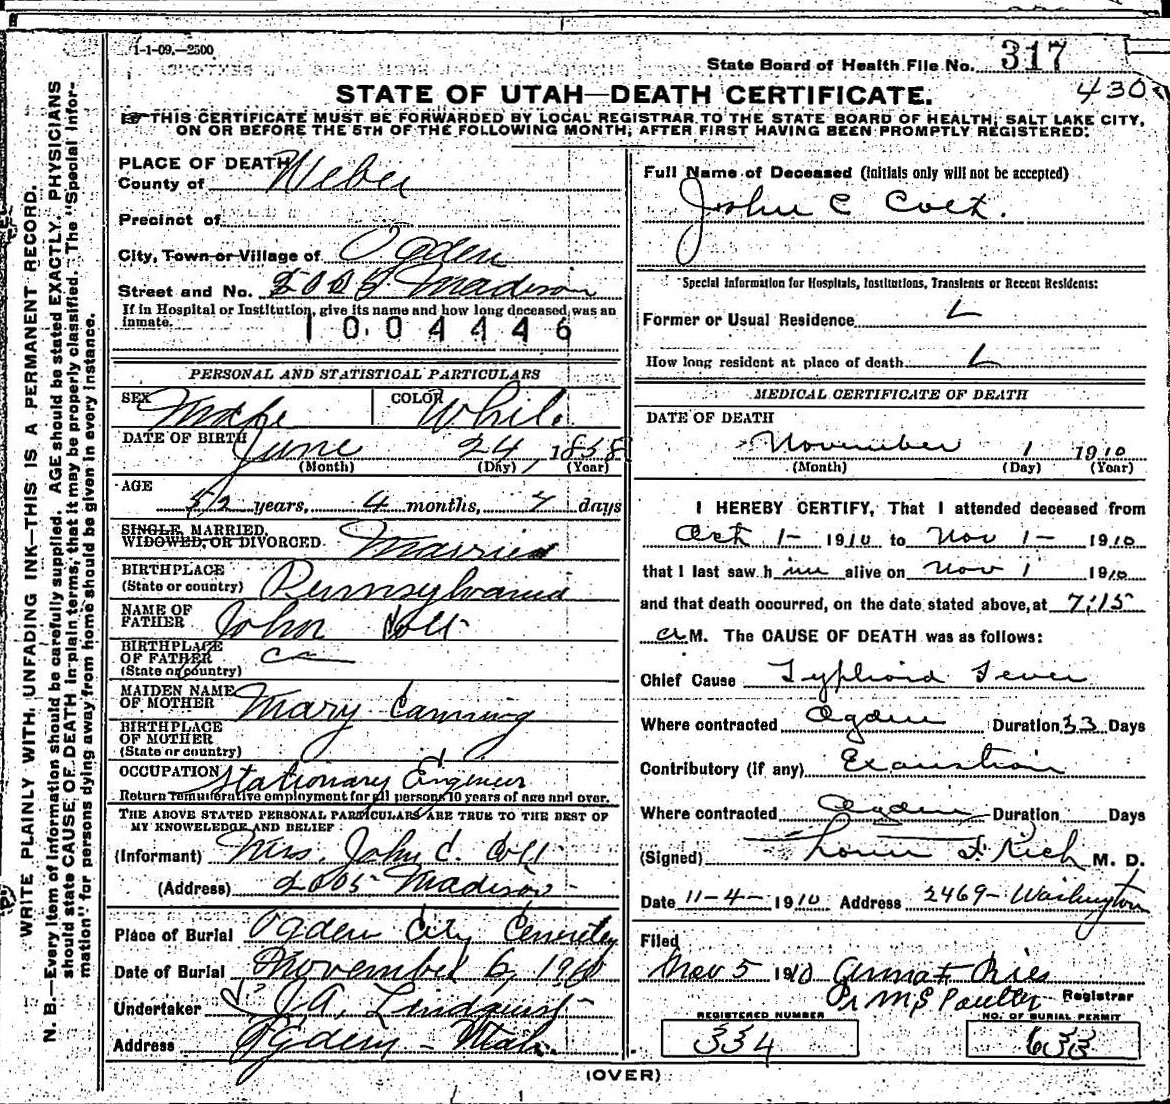 1-1-09.—2500
State Board of Health File No. 317
430
STATE OF UTAH—DEATH CERTIFICATE.
THIS CERTIFICATE MUST BE FORWARDED BY LOCAL REGISTRAR TO THE STATE BOARD OF HEALTH, SALT LAKE CITY,
ON OR BEFORE THE 5TH OF THE FOLLOWING MONTH, AFTER FIRST HAVING BEEN PROMPTLY REGISTERED.
WRITE PLAINLY WITH UNFADING INK—THIS IS A PERMANENT RECORD.
N. B.—Every item of information should be carefully supplied. AGE should be stated EXACTLY. PHYSICIANS
should state CAUSE OF DEATH in plain terms, that it may be properly classified. The "Special Infor-
mation" for persons dying away from home should be given in every instance.
PLACE OF DEATH
County of Weber
Precinct of
City, Town or Village of Ogden
Street and No. 2005 Madison
If in Hospital or Institution, give its name and how long deceased was an
inmate.
1004446
PERSONAL AND STATISTICAL PARTICULARS
SEX Male COLOR White
DATE OF BIRTH June 24, 1858
(Month) (Day) (Year)
AGE
52 years, 4 months, 7 days
SINGLE, MARRIED,
WIDOWED, OR DIVORCED Married
BIRTHPLACE
(State or country) Pennsylvania
NAME OF
FATHER John Colt
BIRTHPLACE
OF FATHER
(State or country)
MAIDEN NAME
OF MOTHER Mary Canning
BIRTHPLACE
OF MOTHER
(State or country)
OCCUPATION Stationary Engineer
Return remunerative employment for all persons 10 years of age and over.
THE ABOVE STATED PERSONAL PARTICULARS ARE TRUE TO THE BEST OF
MY KNOWELEDGE AND BELIEF
(Informant) Mrs. John C. Colt
(Address) 2005 Madison
Place of Burial Ogden City Cemetery
Date of Burial November 6, 1910
Undertaker J.A. Lindquist
Address Ogden - Utah.
Full Name of Deceased (Initials only will not be accepted)
John C Colt.
Special Information for Hospitals, Institutions, Transients or Recent Residents:
Former or Usual Residence
How long resident at place of death
MEDICAL CERTIFICATE OF DEATH
DATE OF DEATH
November 1 1910
(Month) (Day) (Year)
I HEREBY CERTIFY, That I attended deceased from
Oct 1- 1910 to Nov 1- 1910
that I last saw him alive on Nov 1 1910
and that death occurred, on the date stated above, at 7:15
a M. The CAUSE OF DEATH was as follows:
Chief Cause Typhoid Fever
Where contracted Ogden Duration 33 Days
Contributory (if any) Exaustion
Where contracted Ogden Duration Days
(Signed) F. Rich M. D.
Date 11-4- 1910 Address 2469- Washington
Filed
Nov 5 1910
Registrar
REGISTERED NUMBER
334
NO. OF BURIAL PERMIT
633
(OVER)